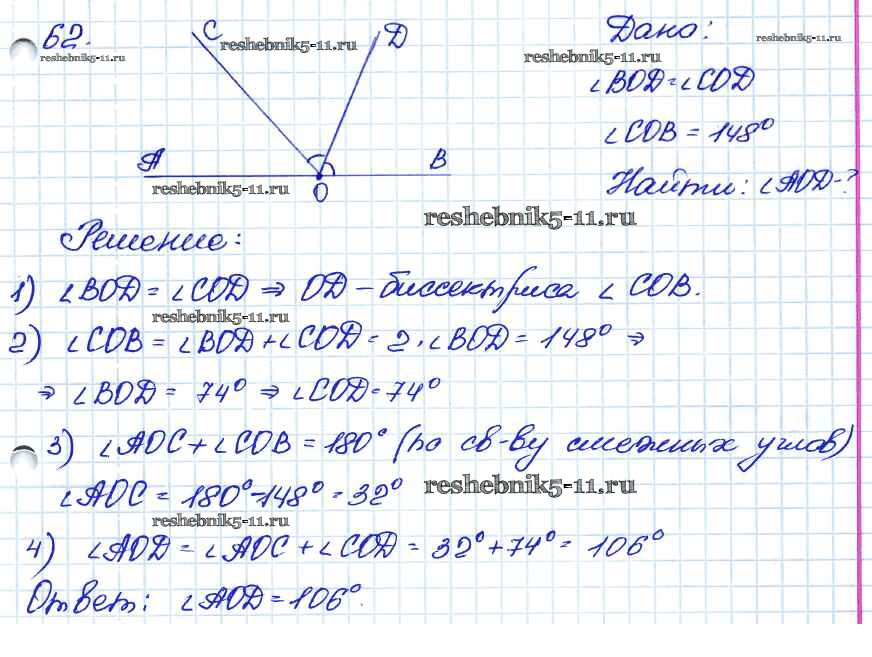 62.
C
D
Дано:
reshebnik5-11.ru
reshebnik5-11.ru
reshebnik5-11.ru
reshebnik5-11.ru
∠BOD = ∠COD
∠COB = 148°
A
B
O
reshebnik5-11.ru
Найти: ∠AOD - ?
reshebnik5-11.ru
Решение:
1) ∠BOD = ∠COD ⇒ OD – биссектриса ∠ COB.
reshebnik5-11.ru
2) ∠COB = ∠BOD + ∠COD = 2 · ∠BOD = 148° ⇒
⇒ ∠BOD = 74° ⇒ ∠COD = 74°
3) ∠AOC + ∠COB = 180° (по св-ву смежных углов)
∠AOC = 180° - 148° = 32°
reshebnik5-11.ru
reshebnik5-11.ru
4) ∠AOD = ∠AOC + ∠COD = 32° + 74° = 106°
Ответ: ∠AOD = 106°.